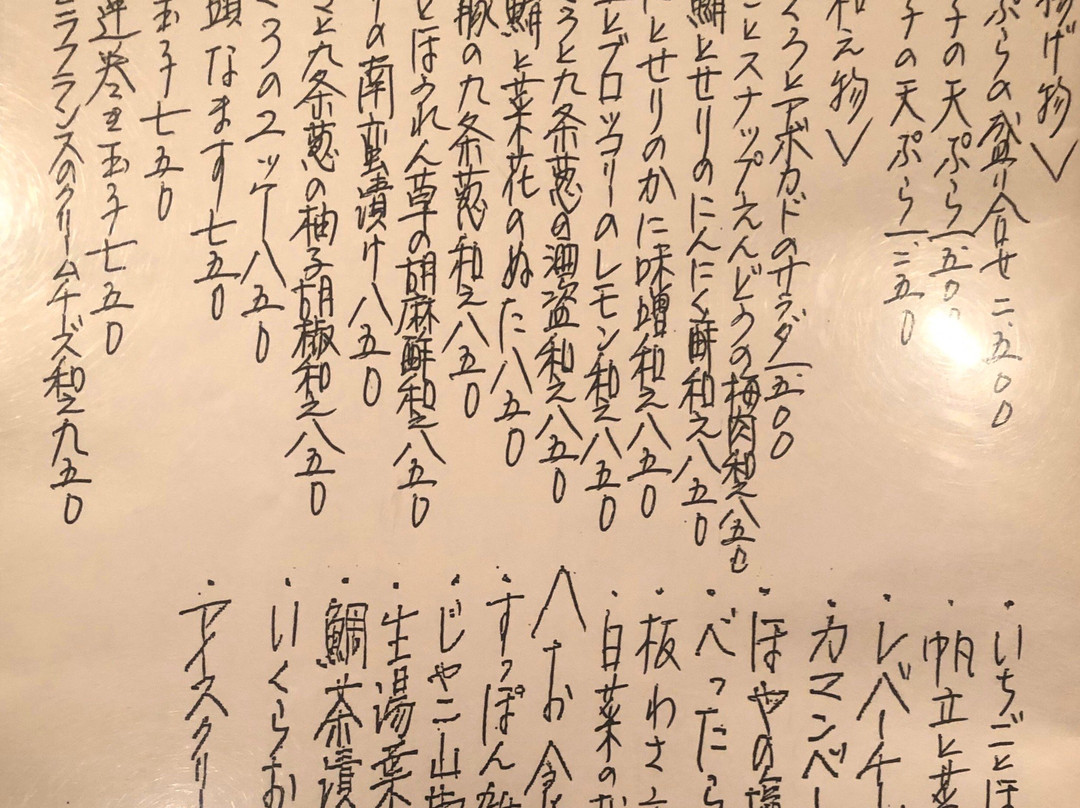 揚げ物〉
ぷらの盛り合せ二、五〇〇
子の天ぷら一、五〇〇
子の天ぷら一、二五〇
和え物〉
くろとアボカドのサラダ一、五〇〇
ことスナップえんどうの梅肉和え八五〇
鯛とせりのにんにく酢和え八五〇
にとせりのかに味噌和え八五〇
とブロッコリーのレモン和え八五〇
ろと九条葱の酒盗和え八五〇
鯛と菜花のぬた八五〇
豚の九条葱和え八五〇
とほうれん草の胡麻酢和え八五〇
の南蛮漬け八五〇
と九条葱の柚子胡椒和え八五〇
くろのユッケ八五〇
頭なます七五〇
玉子七五〇
巻玉子七五〇
ラフランスのクリームチーズ和え九五〇
・いちごとほ
・帆立と
・レバーチ
・カマンベー
・ほやの塩
・べったら
・板わさ
・白菜の
〈お食
・すっぽん
・じゃこ山
・生湯葉
・鯛茶漬
・いくらお
・アイスクリ